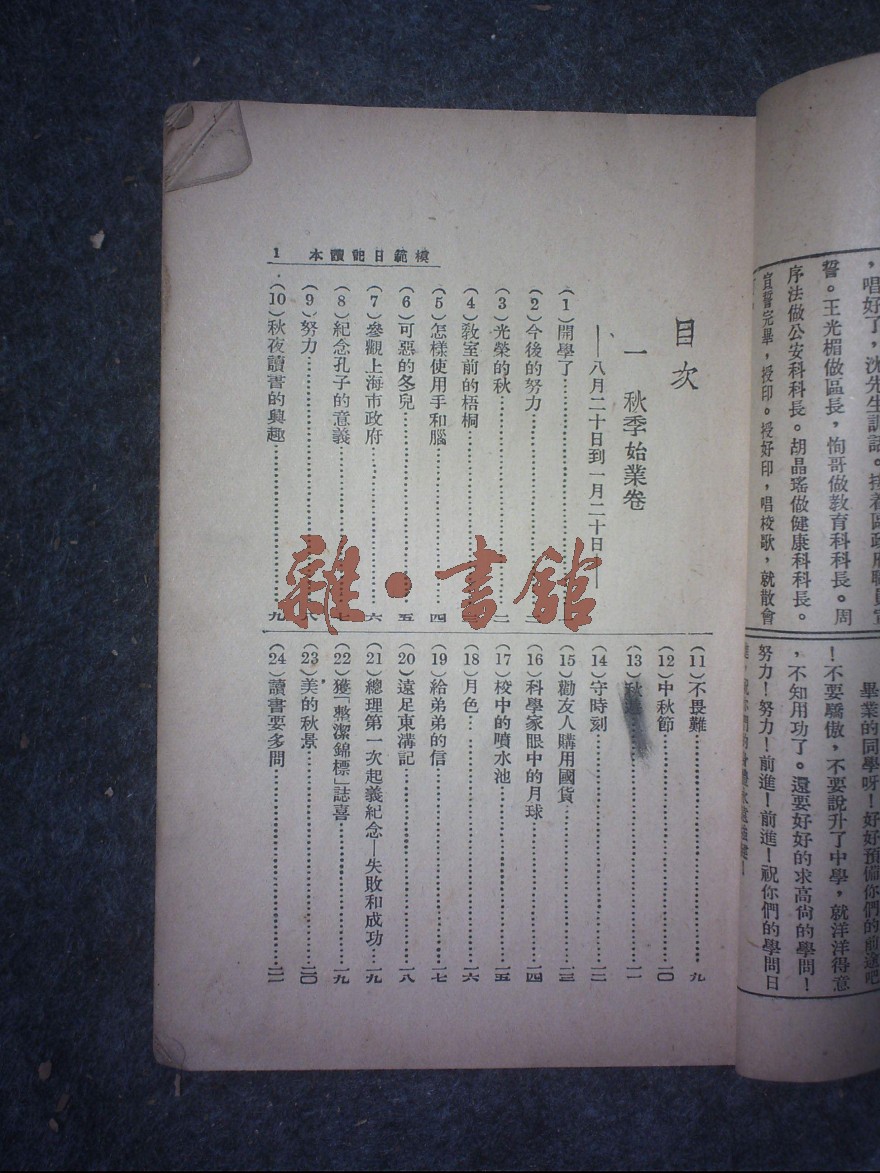 ，唱好了，沈先生訓話。接着區政府職員宣
誓。王光楣做區長，恂哥做教育科科長。周
序法做公安科科長。胡晶瑤做健康科科長。
宣誓完畢，授印。授好印，唱校歌，就散會
畢業的同學呀！好好預備你們的前途吧
！不要驕傲，不要說升了中學，就洋洋得意
，不知用功了。還要好好的求高尚的學問！
努力！努力！前進！前進！祝你們的學問日
模範日記讀本 1
目次
一 秋季始業卷
——八月二十日到一月二十日——
（1）開學了
（2）今後的努力
（3）光榮的秋 二
（4）教室前的梧桐
（5）怎樣使用手和腦 四
（6）可惡的冬兒 五
（7）參觀上海市政府 六
（8）紀念孔子的意義 七
（9）努力 八
（10）秋夜讀書的興趣 九
（11）不畏難 九
（12）中秋節 一〇
（13）秋 一一
（14）守時刻 一二
（15）勸友人購用國貨 一三
（16）科學家眼中的月球 一四
（17）校中的噴水池 一五
（18）月色 一六
（19）給弟弟的信 一七
（20）遠足東溝記 一八
（21）總理第一次起義紀念—失敗和成功 一九
（22）獲「整潔錦標」誌喜 一九
（23）美的秋景 二〇
（24）讀書要多問 二一
雜·書館